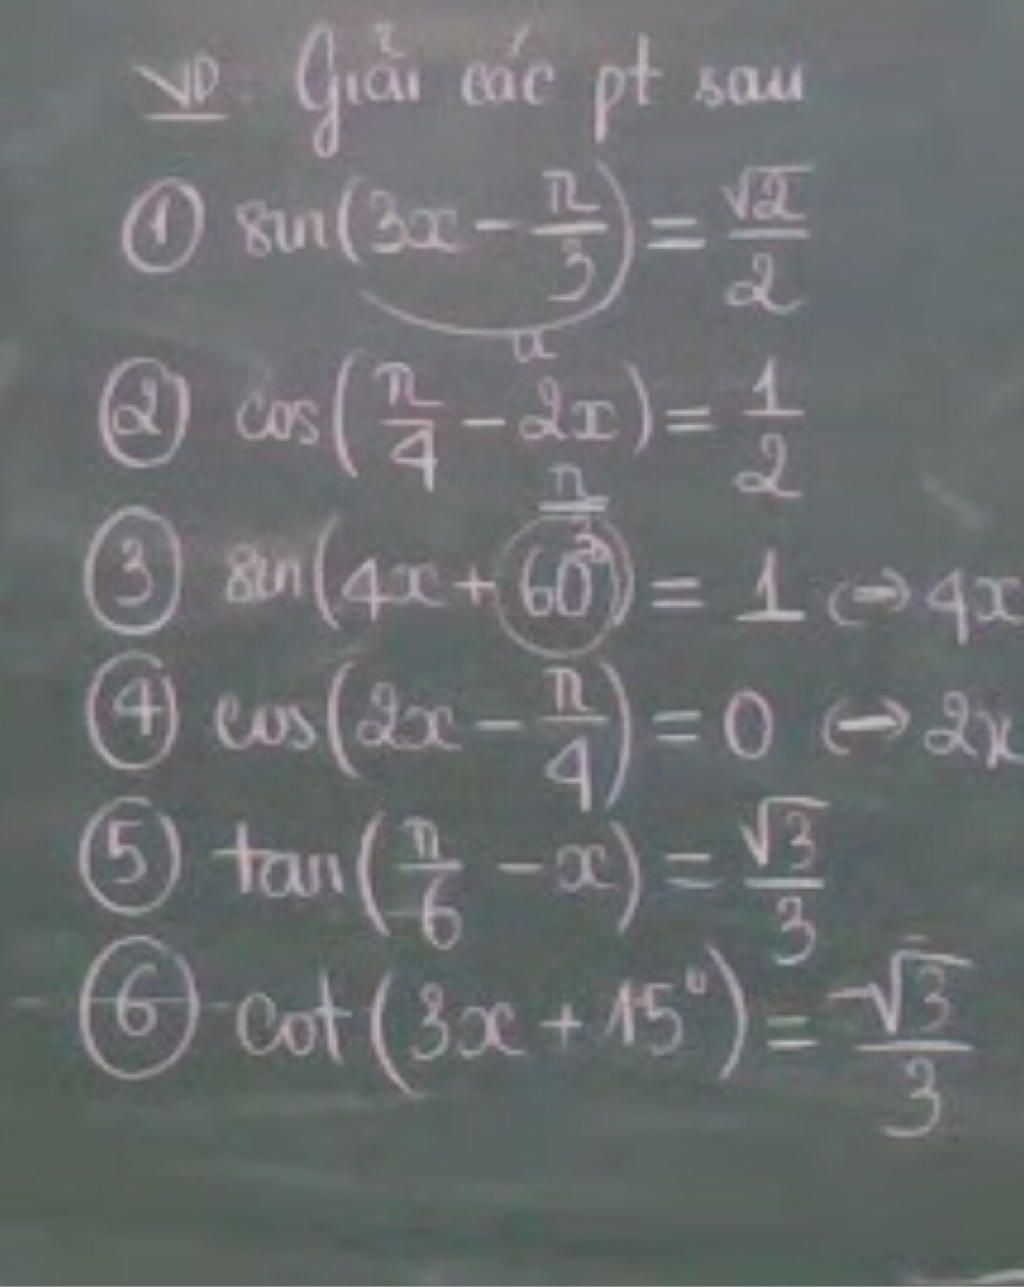 VD: Giải các pt sau
① sin(3x - π/3) = √2/2
u
② cos(π/4 - 2x) = 1/2
π/3
③ sin(4x + 60°) = 1 ↔ 4x
④ cos(2x - π/4) = 0 ↔ 2x
⑤ tan(π/6 - x) = √3/3
⑥ cot(3x + 15°) = -√3/3